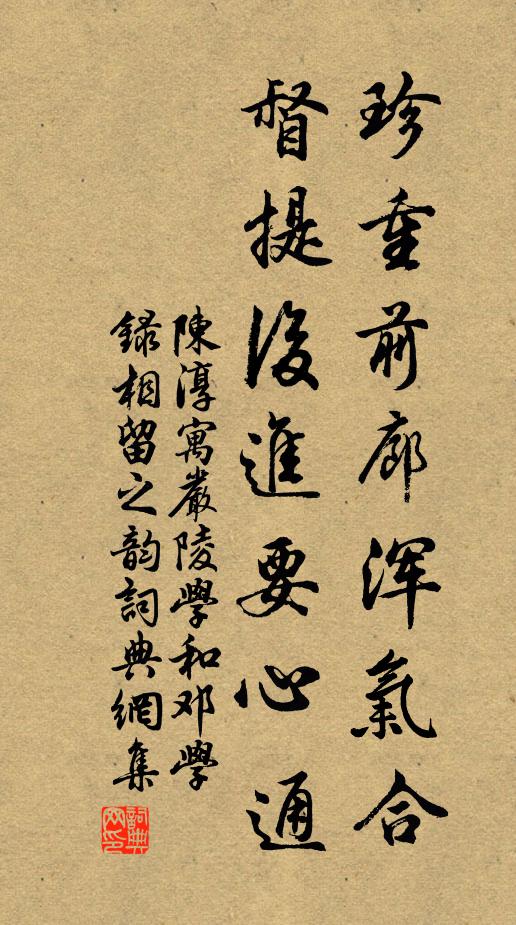 珍重前廊浑氣合
督提後進要心通
陳淳寓嚴陵學和邓學
録相留之韵詞典網集
詞典网印